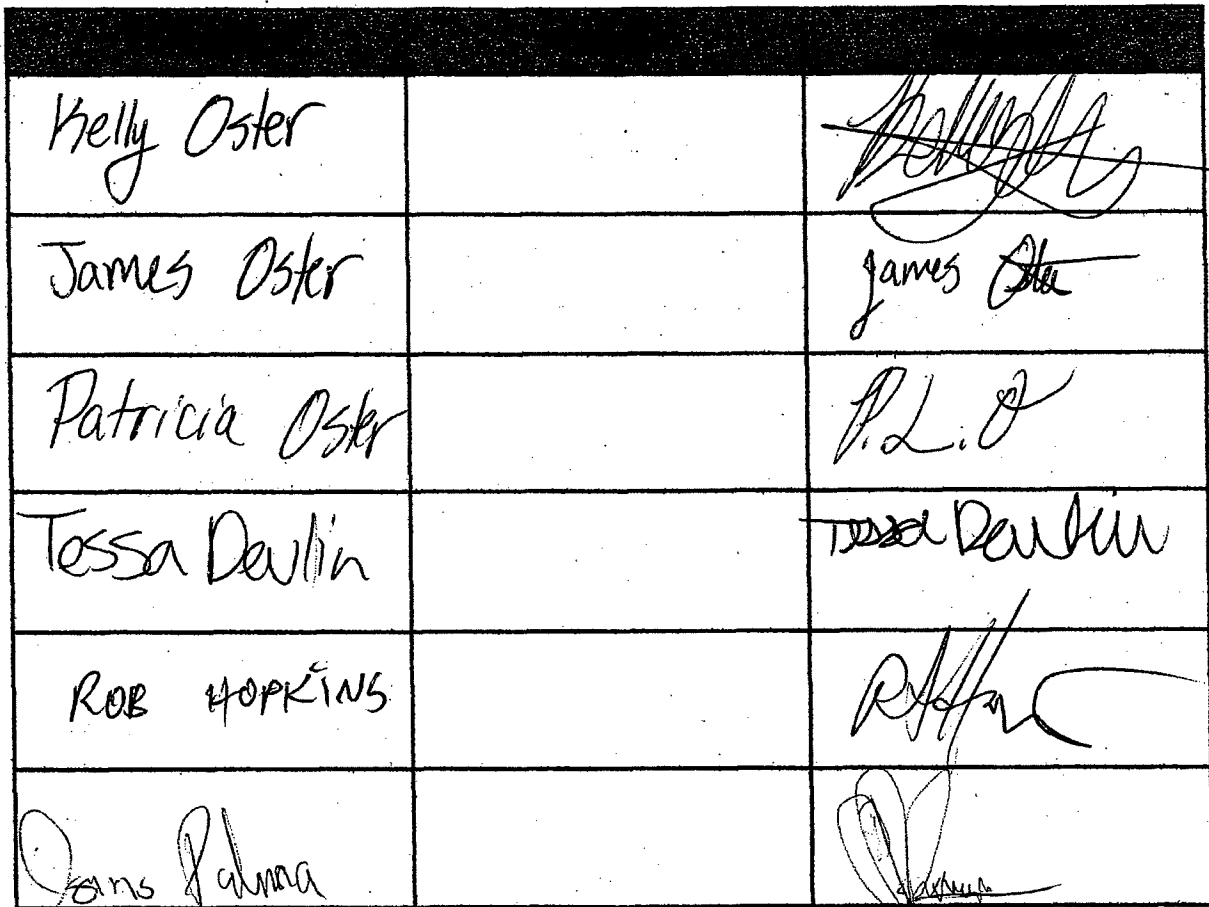 Kelly Oster
James Oster James Oster
Patricia Oster P.L.O
Tessa Devlin Tessa Devlin
ROB HOPKINS
Palma